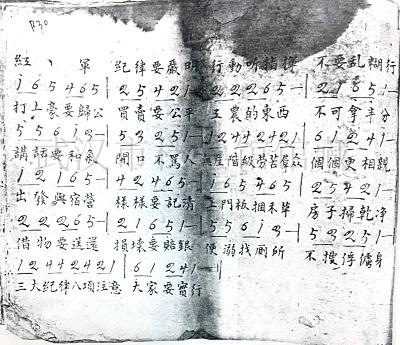 P30
红 、 軍 紀律要嚴明 行動听指揮 不要乱糊行
1 6 5 4 6 5 | 2 5 4 2 1 — | 2 2 2 6 5 — | 2 1 6 5 1
打土豪要歸公 買賣要公平 工農的東西 不可拿半分
5 5 6 1 3 — | 5 3 2 5 1 — | 1 2 4 4 2 4 2 1 | 6 1 2 4 1
講話要和氣 開口不罵人 無產階級勞苦羣众 個個更相親
1 6 5 4 6 5 — | 4 2 4 6 5 — | 1 6 5 4 6 5 | 2 5 4 2 1
出發與宿營 樣樣要記清 上門板捆禾草 房子掃乾净
2 2 2 6 5 — | 2 1 6 5 1 — | 5 5 6 1 3 — | 5 3 2 5 1
借物要送還 損壞要賠銀 便溺找厠所 不搜俘虜身
1 2 4 4 2 4 2 1 | 6 1 2 4 1 —
三大紀律八項注意 大家要實行